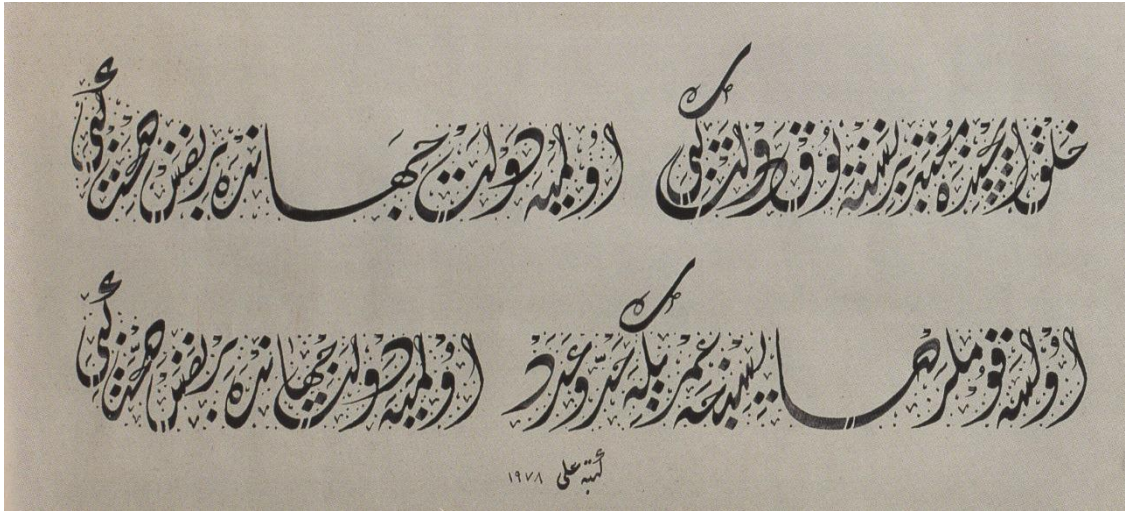 خلق ایچنده معتبر بر نسنه یوق دولت گبی اولمیه دولت جهانده بر نفس صحت گبی
اولسه قوملر عمرینه حد و عدد اولمیه دولت جهانده بر نفس صحت گبی
كتبه علی ١٩٧٨